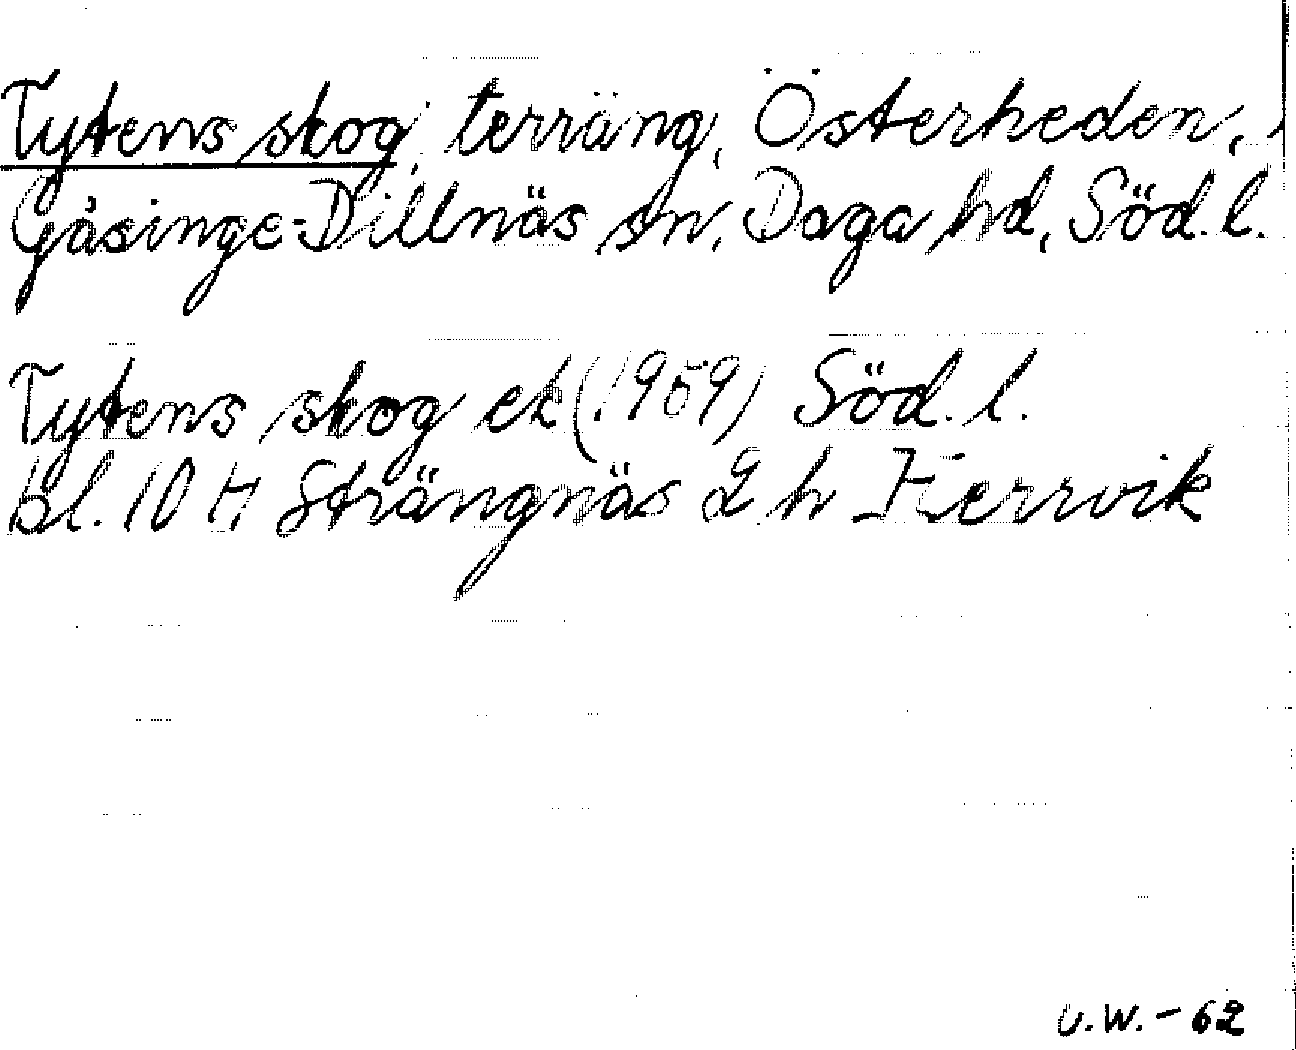 Tytens skog, terräng, Österheden,
Gåsinge-Dillnäs sn, Daga hd, Söd. l.
Tytens skog ek (1959) Söd. l.
bl. 10 H Strängnäs 2 h Herrvik
U.W. - 62